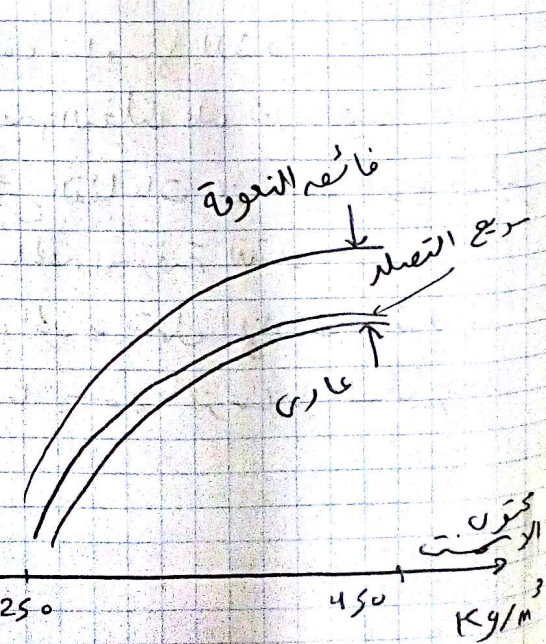 فائقه النعومة
سريع التصلد
عادى
محتوى
الاسمنت
250
450
Kg/m³